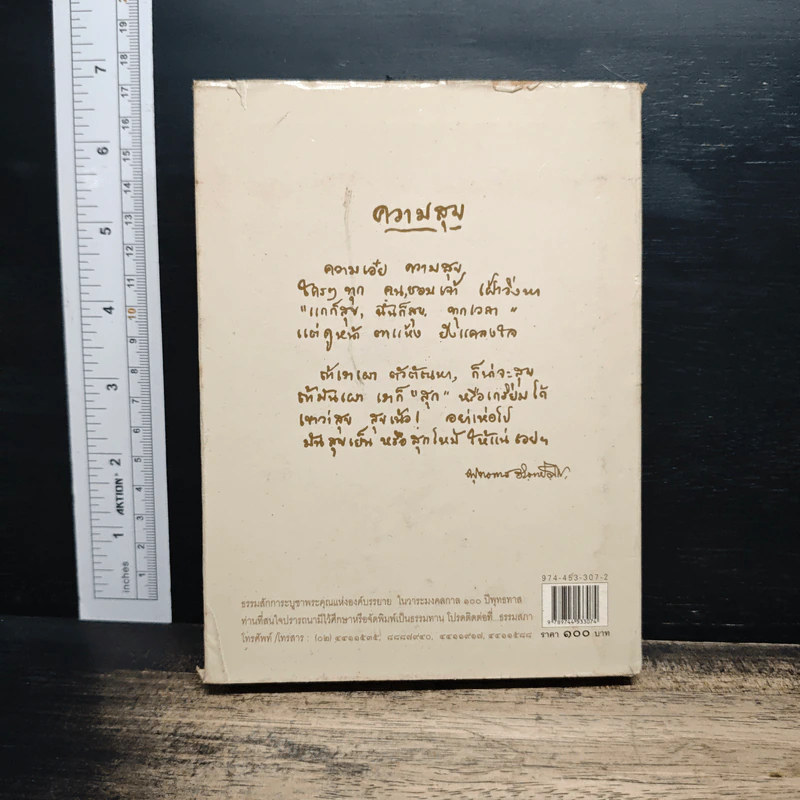 ความสุข
ความเอ๋ย ความสุข
ใครๆ ทุก คน,ชอบเจ้า เฝ้าวิ่งหา
"แกก็สุข, ฉันก็สุข, ทุกเวลา"
แต่ดูหน้า ตาแห้ง ยังแคลงใจ
ถ้าเราเผา ตัวตัณหา, ก็น่าจะสุข
ถ้ามันเผา เราก็ "สุก" หรือเกรียมได้
เขาว่าสุข สุขเน้อ! อย่าเห่อไป
มันสุขเย็น หรือสุกไหม้ ให้แน่ เอยฯ
พุทธทาส อินฺทปญฺโญ.
974-453-307-2
9 789744 533074
ธรรมสักการะบูชาพระคุณแห่งองค์บรรยาย ในวาระมงคลกาล ๑๐๐ ปีพุทธทาส
ท่านที่สนใจปรารถนามีไว้ศึกษาหรือจัดพิมพ์เป็นธรรมทาน โปรดติดต่อที่...ธรรมสภา
โทรศัพท์ /โทรสาร : (๐๒) ๔๔๑๑๕๓๕, ๘๘๘๗๙๔๐, ๔๔๑๑๙๑๗, ๔๔๑๑๕๘๘
ราคา ๑๐๐ บาท
inches
1 2 3 4 5 6 7
AKTION
1 2 3 4 5 6 7 8 9 10 11 12 13 14 15 16 17 18 19